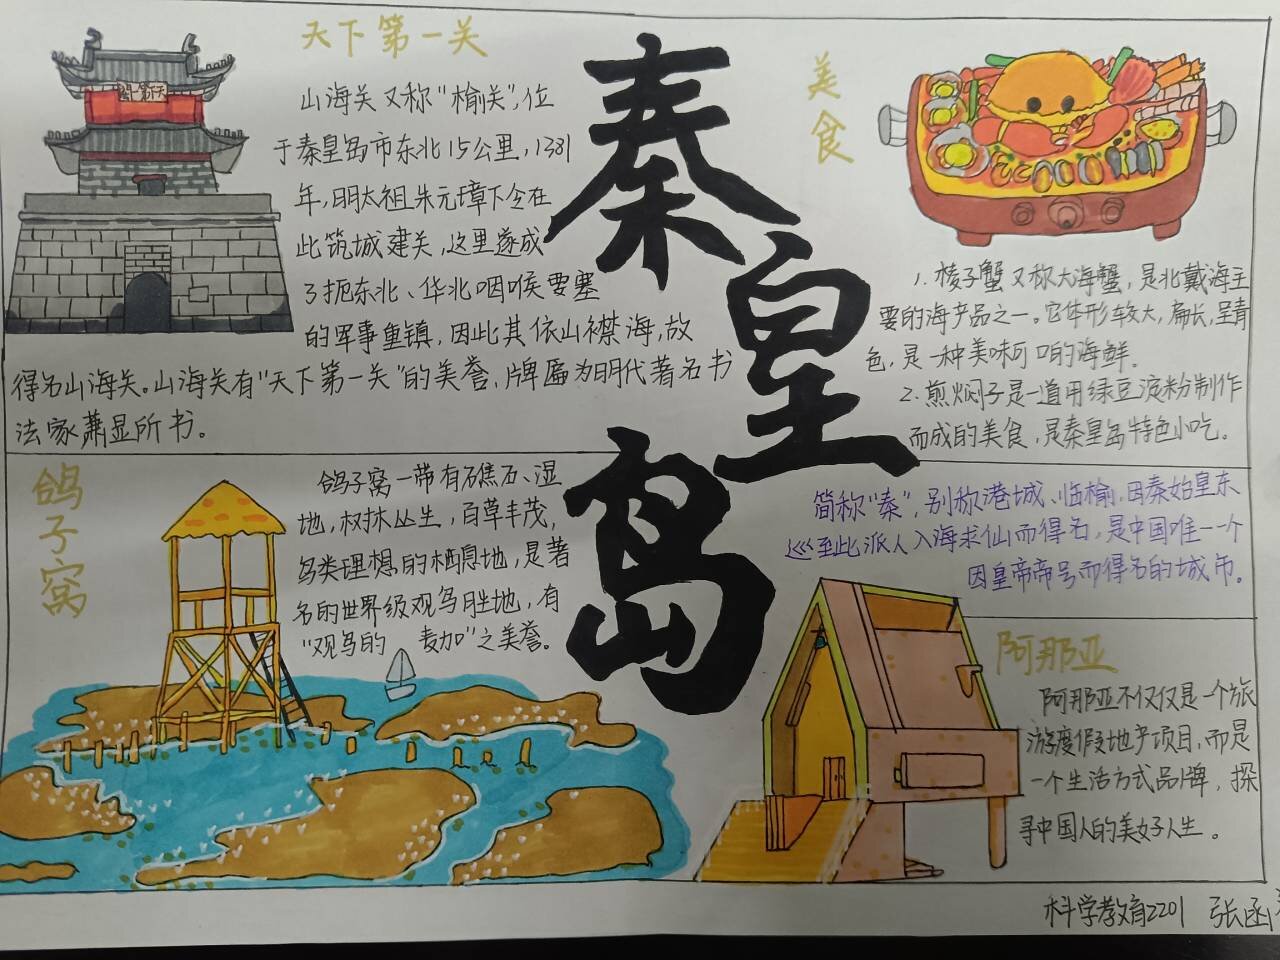 天下第一关
天下第一关
山海关又称“榆关”,位
于秦皇岛市东北15公里,1381
年,明太祖朱元璋下令在
此筑城建关,这里遂成
了扼东北、华北咽喉要塞
的军事重镇,因此其依山襟海,故
得名山海关。山海关有“天下第一关”的美誉,牌匾为明代著名书
法家萧显所书。
秦皇岛
美食
1.梭子蟹又称大海蟹,是北戴海主
要的海产品之一。它体形较大,扁长,呈青
色,是一种美味可口的海鲜。
2.煎焖子是一道用绿豆淀粉制作
而成的美食,是秦皇岛特色小吃。
鸽子窝
鸽子窝一带有礁石、湿
地,树林丛生,百草丰茂,
鸟类理想的栖息地,是著
名的世界级观鸟胜地,有
“观鸟的 麦加”之美誉。
简称“秦”,别称港城、临榆,因秦始皇东
巡至此派人入海求仙而得名,是中国唯一一个
因皇帝帝号而得名的城市。
阿那亚
阿那亚不仅仅是一个旅
游度假地产项目,而是
一个生活方式品牌,探
寻中国人的美好人生。
科学教育2201 张函